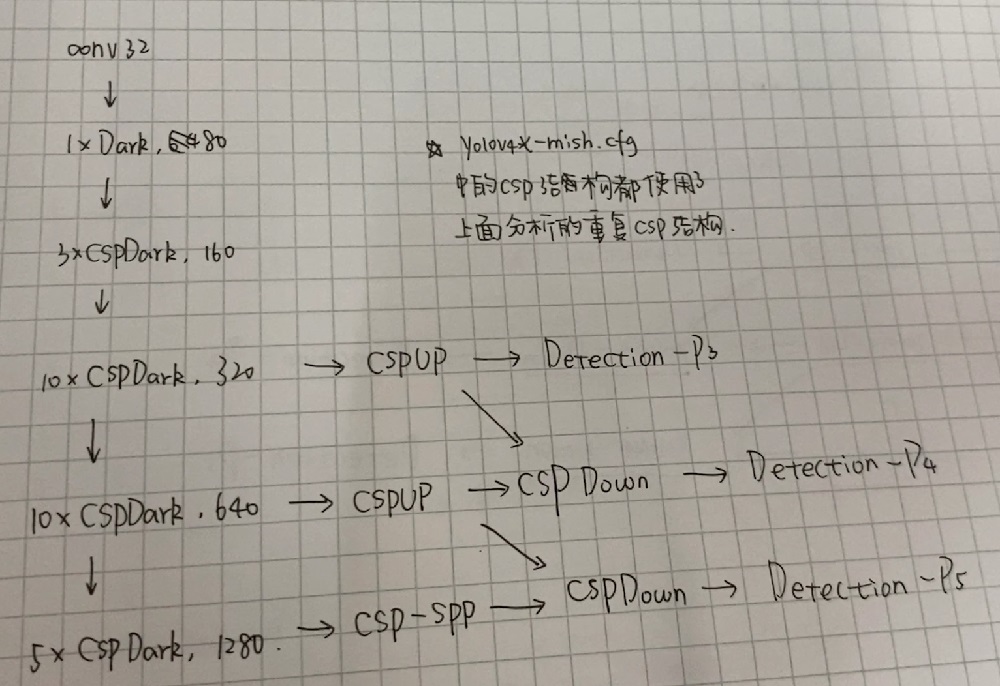 conv 32
1×Dark, 80
☆ Yolov4x-mish.cfg
中的csp结构都使用了
上面分析的重复csp结构.
3×CSPDark, 160
10×CSPDark, 320 → CSPUP → Detection-P3
10×CSPDark, 640 → CSPUP → CSPDown → Detection-P4
5×CSPDark, 1280. → CSP-SPP → CSPDown → Detection-P5